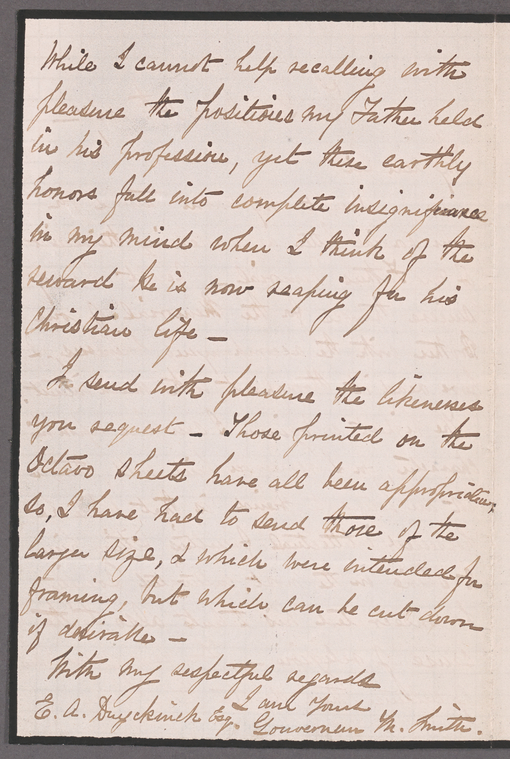 While I cannot help recalling with
pleasure the positions my Father held
in his profession, yet these earthly
honors fall into complete insignificance
in my mind when I think of the
reward he is now reaping for his
Christian life —
I send with pleasure the likenesses
you request — Those printed on the
Octavo sheets have all been appropriated,
so, I have had to send those of the
larger size, & which were intended for
framing, but which can be cut down
if desirable —
With my respectful regards
I am Yours
E. A. Duyckinck Esq. Gouverneur M. Smith.